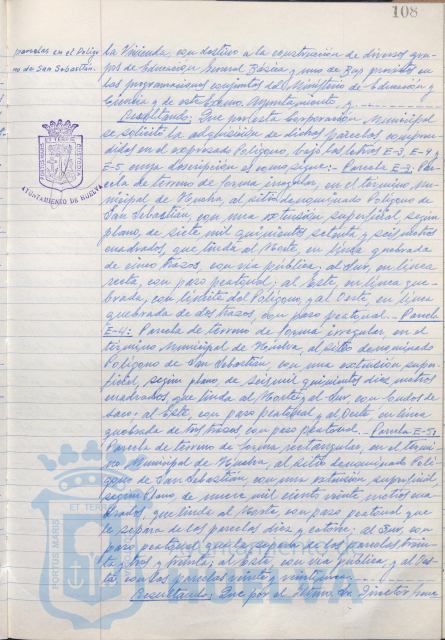 108
parcelas en el Polígo
no de San Sebastián.
la Vivienda, con destino a la construcción de diversos gru-
pos de Educación General Básica y uno de Bup previstos en
las programaciones conjuntas del Ministerio de Educación y
Ciencia y de este Excmo. Ayuntamiento, y
Resultando: Que por esta Corporación Municipal
se solicita la adquisición de dichas parcelas compren-
didas en el expresado Polígono, bajo las letras E-3, E-4 y
E-5 cuya descripción es como sigue:- Parcela E-3: Par-
cela de terreno de forma irregular, en el término Mu-
nicipal de Huelva, al sitio denominado Polígono de
San Sebastián, con una extensión superficial, según
plano, de siete mil quinientos setenta y seis metros
cuadrados, que linda al Norte, en línea quebrada
de cinco trazos, con vía pública; al Sur, en línea
recta, con paso peatonal; al Este, en línea que-
brada, con límite del Polígono, y al Oeste, en línea
quebrada de dos trazos, con paso peatonal.- Parcela
E-4: Parcela de terreno de forma irregular, en el
término Municipal de Huelva, al sitio denominado
Polígono de San Sebastián, con una extensión super-
ficial, según plano, de seis mil quinientos diez metros
cuadrados, que linda al Norte y al Sur, con fondos de
saco; al Este, con paso peatonal y al Oeste en línea
quebrada de tres trazos con paso peatonal.- Parcela E-5:
Parcela de terreno de forma rectangular, en el térmi-
no Municipal de Huelva, al sitio denominado Polí-
gono de San Sebastián, con una extensión superficial
según Plano, de nueve mil ciento veinte metros cua
drados, que linda al Norte con paso peatonal que
le separa de las parcelas diez y catorce; al Sur, con
paso peatonal que la separa de las parcelas trein-
ta y tres y treinta; al Este, con vía pública, y al Oes-
te, con las parcelas veinte y veintinueve.
Resultando: Que por el Iltmo. Sr. Director Gene
AYUNTAMIENTO DE HUELVA
PORTUS MARIS
ET TERRAE